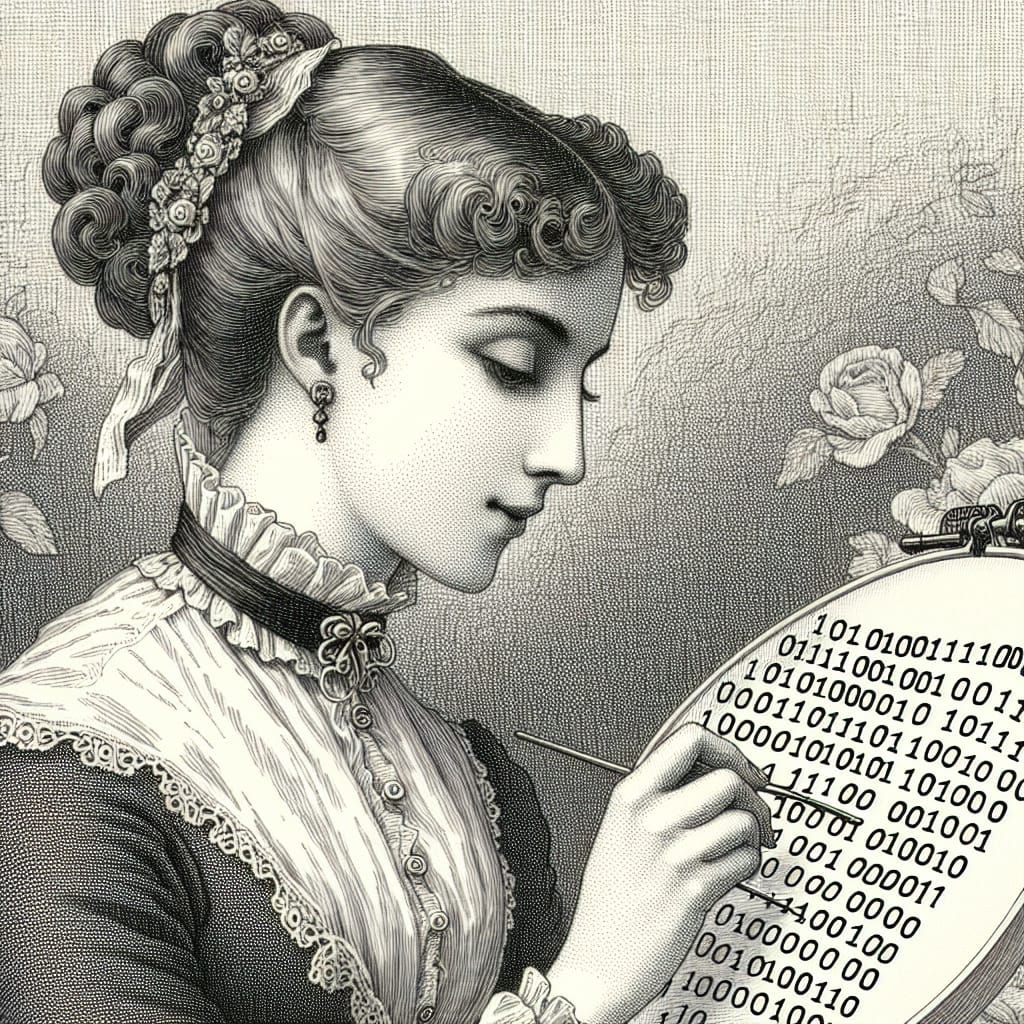 1010100111100
01111001001 0011
1010100010 10111
00011011101100100 00
10000101010 1 101000
1 11100 001001
10001 010010
1 001 000011
0 000 0000
1111100100
0100000 00
0010100110
10000100